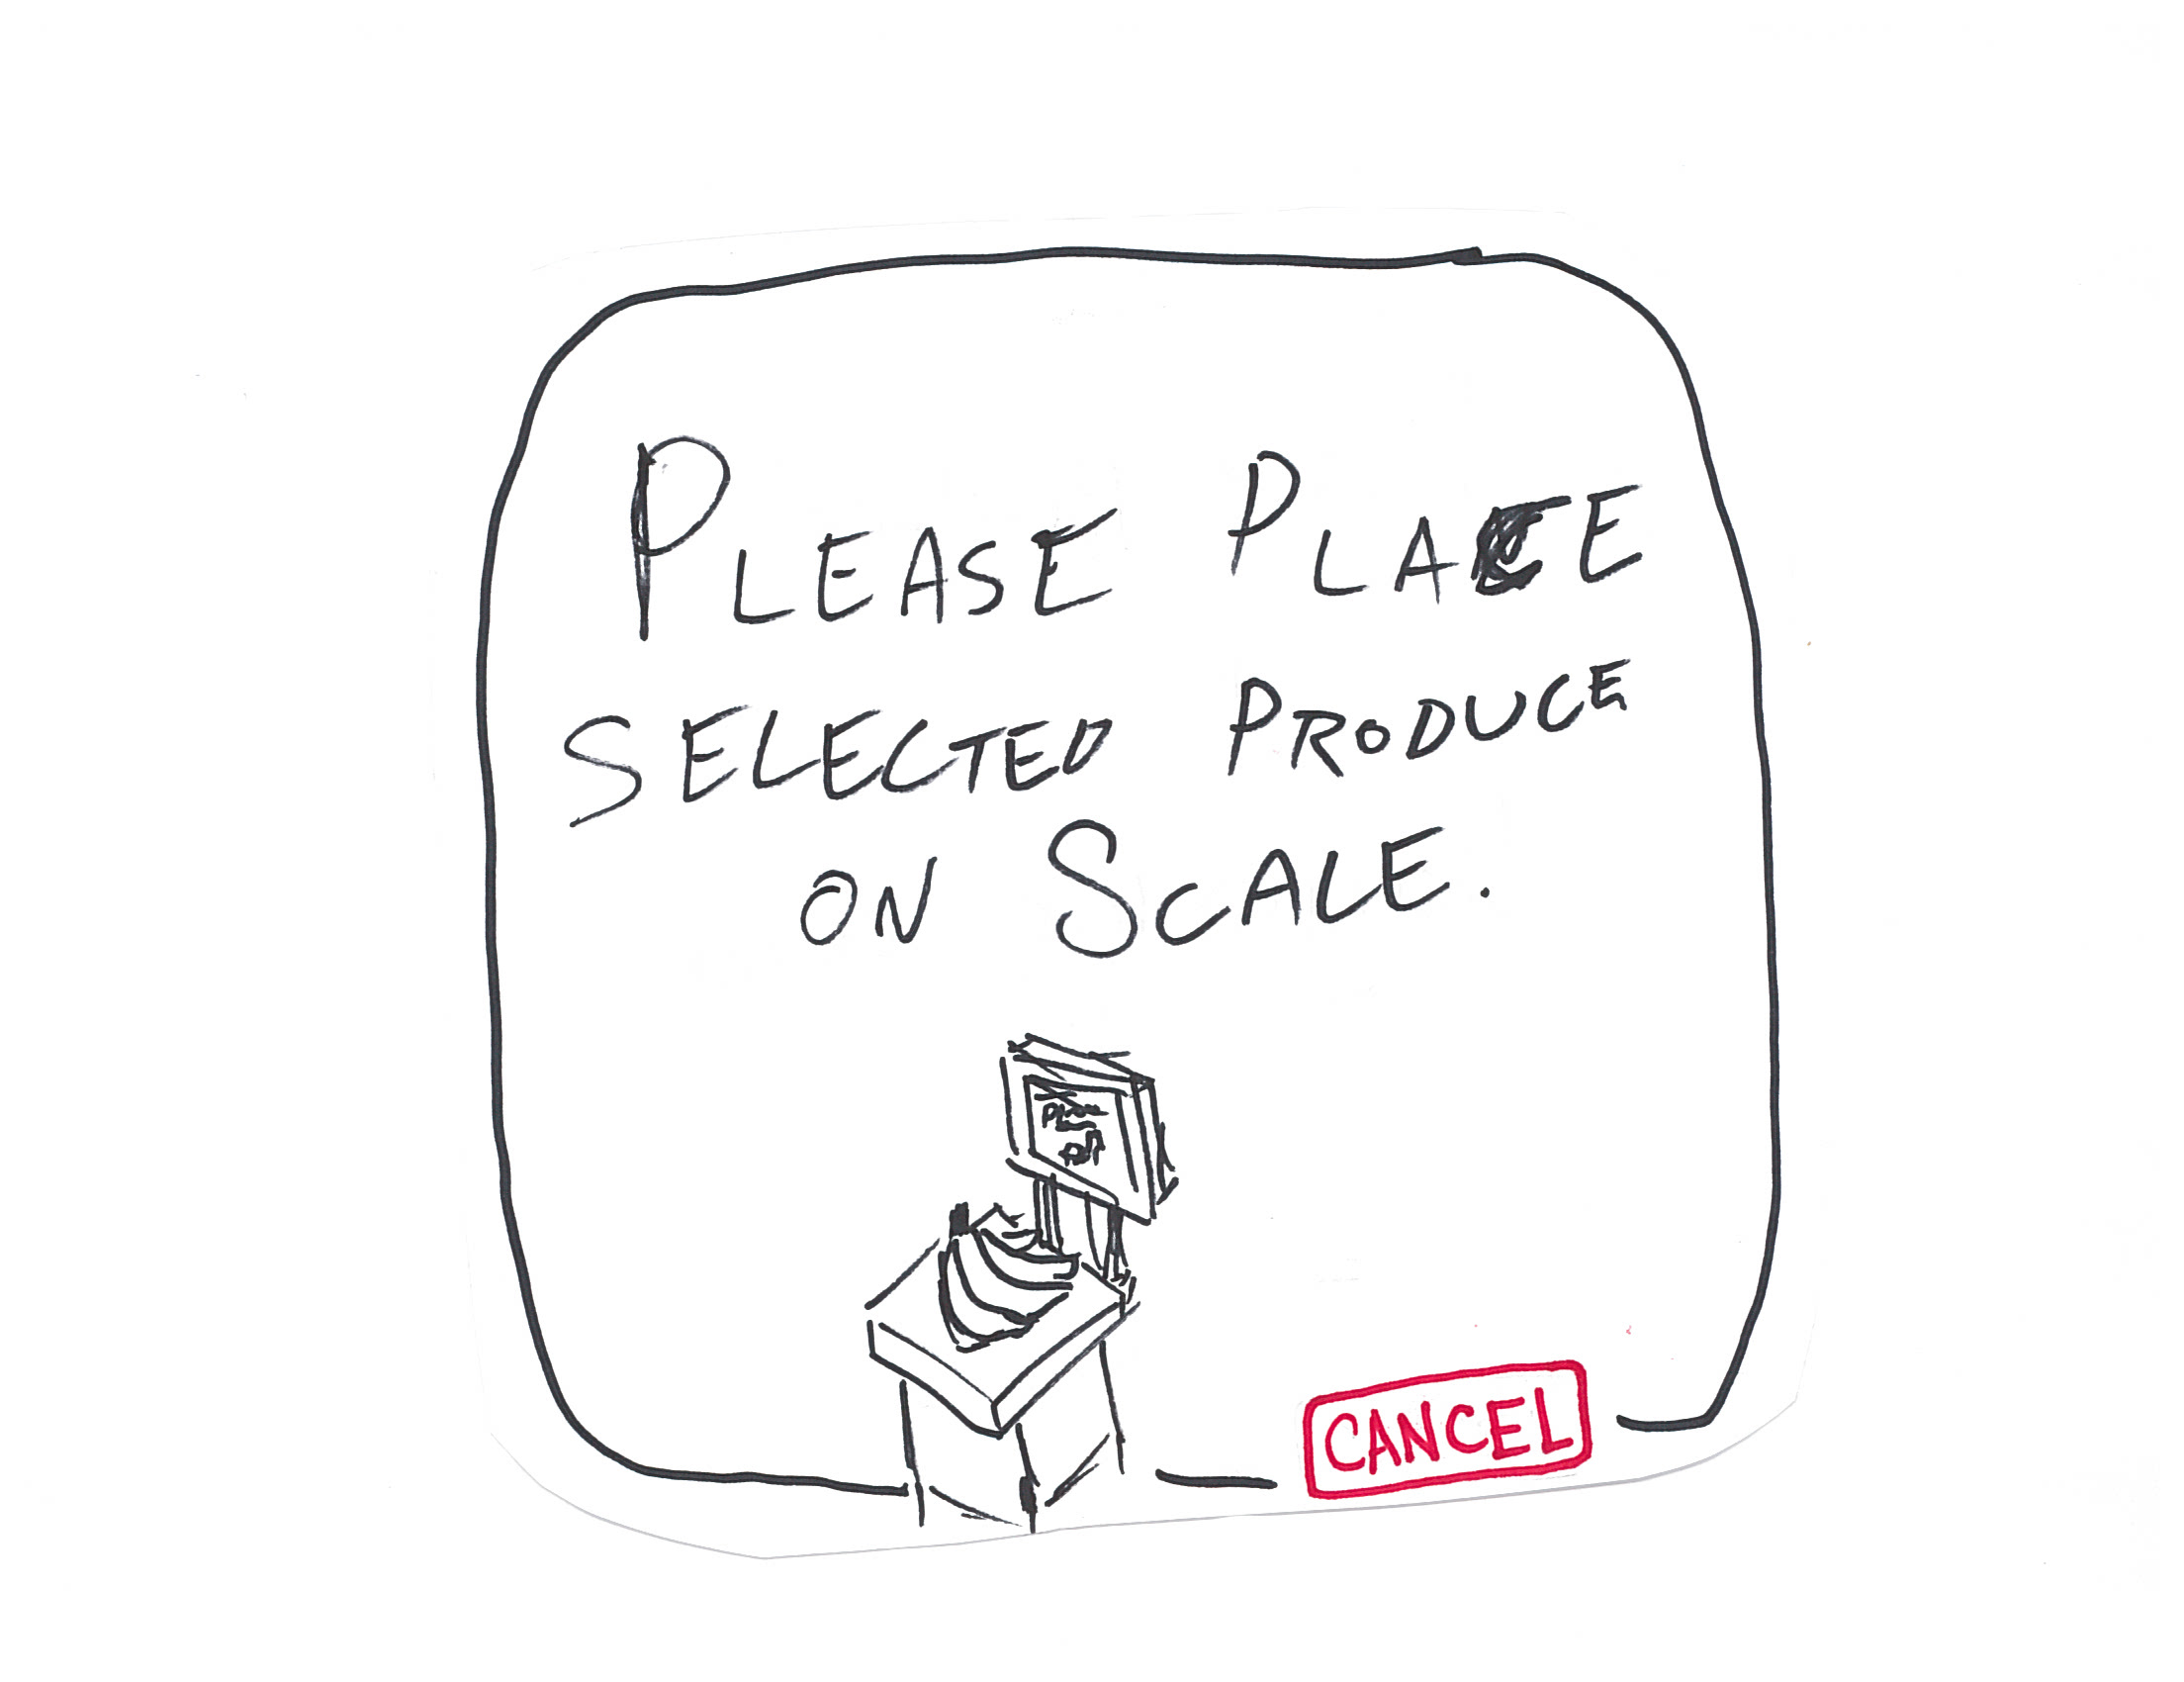 PLEASE PLACE
SELECTED PRODUCE
ON SCALE.
CANCEL